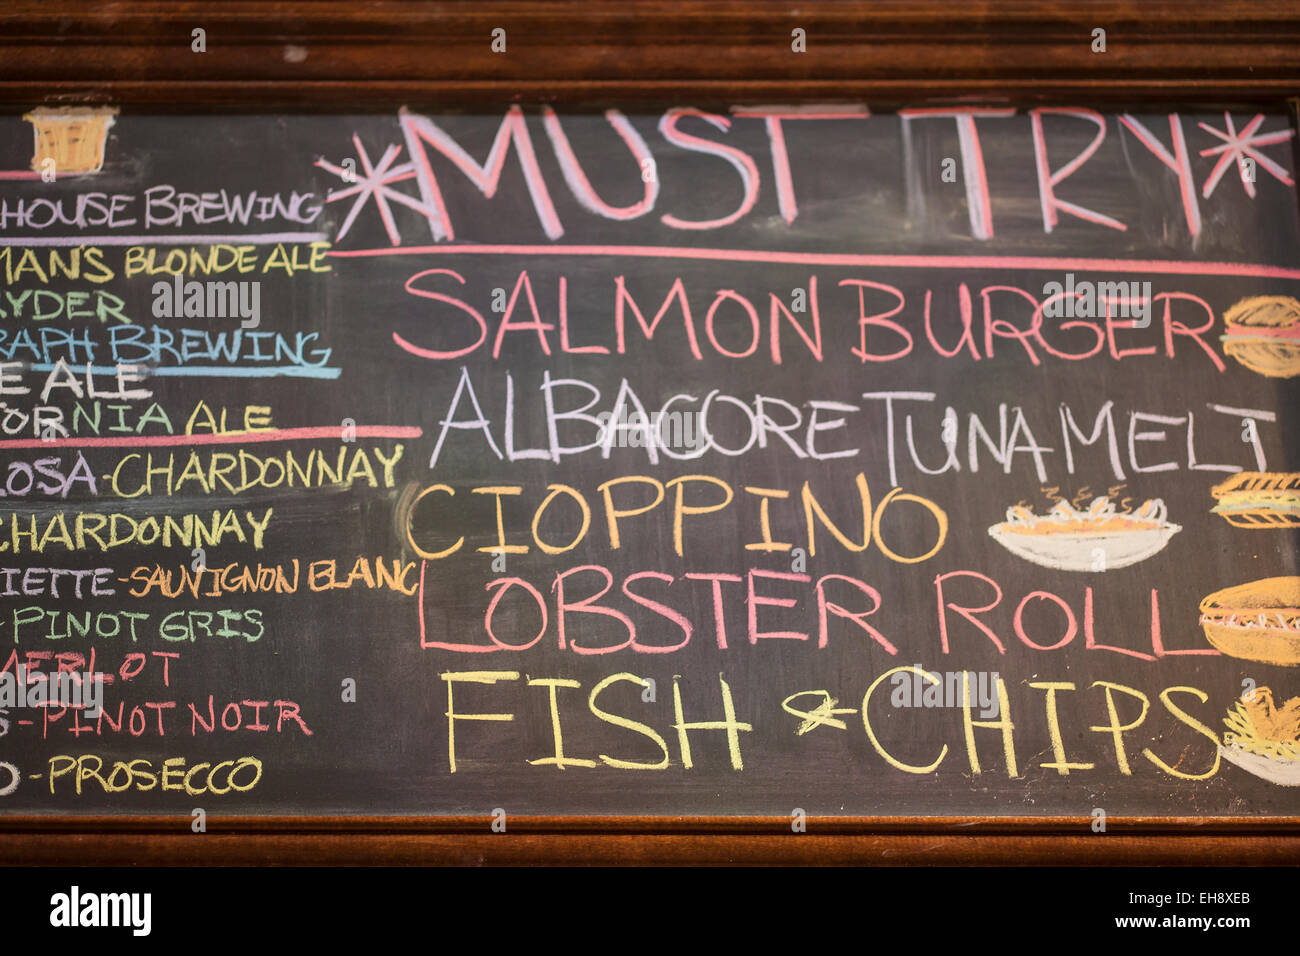 HOUSE BREWING
MAN'S BLONDE ALE
RYDER
RAPH BREWING
E ALE
ORNIA ALE
LOSA - CHARDONNAY
CHARDONNAY
IETTE - SAUVIGNON BLANC
- PINOT GRIS
MERLOT
S - PINOT NOIR
O - PROSECCO
*MUST TRY*
SALMON BURGER
ALBACORE TUNA MELT
CIOPPINO
LOBSTER ROLL
FISH & CHIPS
alamy
Image ID: EH8XEB
www.alamy.com